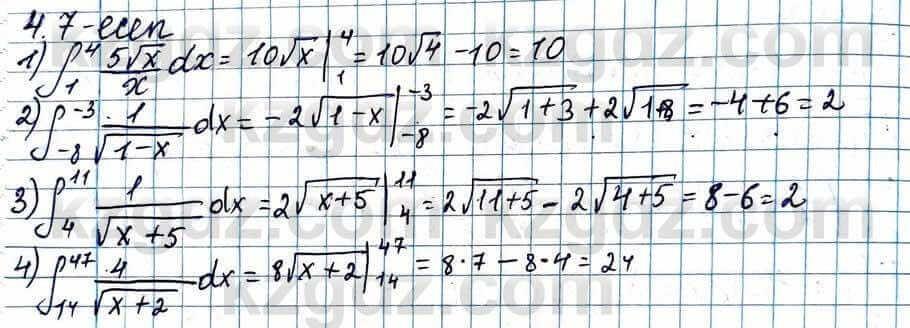 4.7-есеп
1) ∫₁⁴ 5√x/x dx = 10√x |₁⁴ = 10√4 - 10 = 10
2) ∫₋₈⁻³ 1/√(1-x) dx = -2√(1-x) |₋₈⁻³ = -2√(1+3) + 2√(1+8) = -4+6 = 2
3) ∫₄¹¹ 1/√(x+5) dx = 2√(x+5) |₄¹¹ = 2√(11+5) - 2√(4+5) = 8-6 = 2
4) ∫₁₄⁴⁷ 4/√(x+2) dx = 8√(x+2) |₁₄⁴⁷ = 8·7 - 8·4 = 24